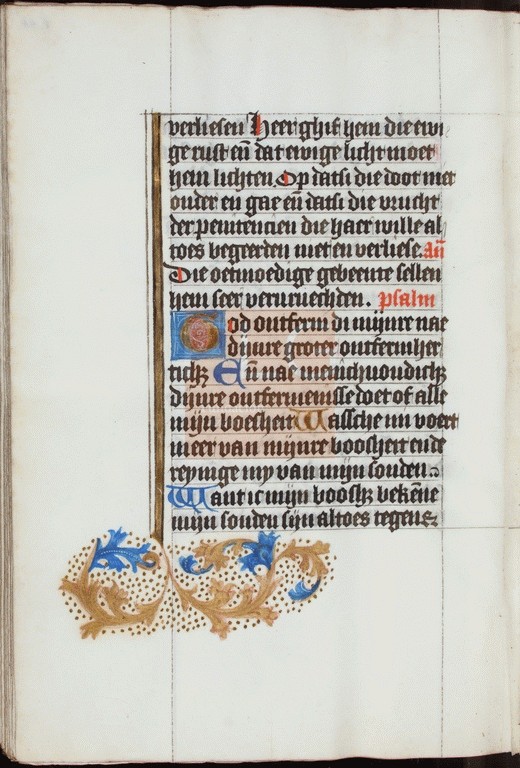 verliesen Heer ghif hem die ewi
ge rust en̄ dat ewige licht moet
hem lichten. Op datsi die doot met
ouder en gae en̄ datsi die vrucht
der penitencien die haer wille al
toes begeerden niet en verliese. An̄
Die oetmoedige gebeente sellen
hem seer vervruechden. psalm
God ontferm di mijnre nae
dijnre groter ontfermher
tich; En̄ nae menichvondich;
dijnre ontfermenisse doet of alle
mijn boesheit Wassche mi voert
meer van mijnreboosheit ende
reynige my van mijn sonden
Want ic mijn boosh; bekēne
mijn sonden sijn altoes tegens